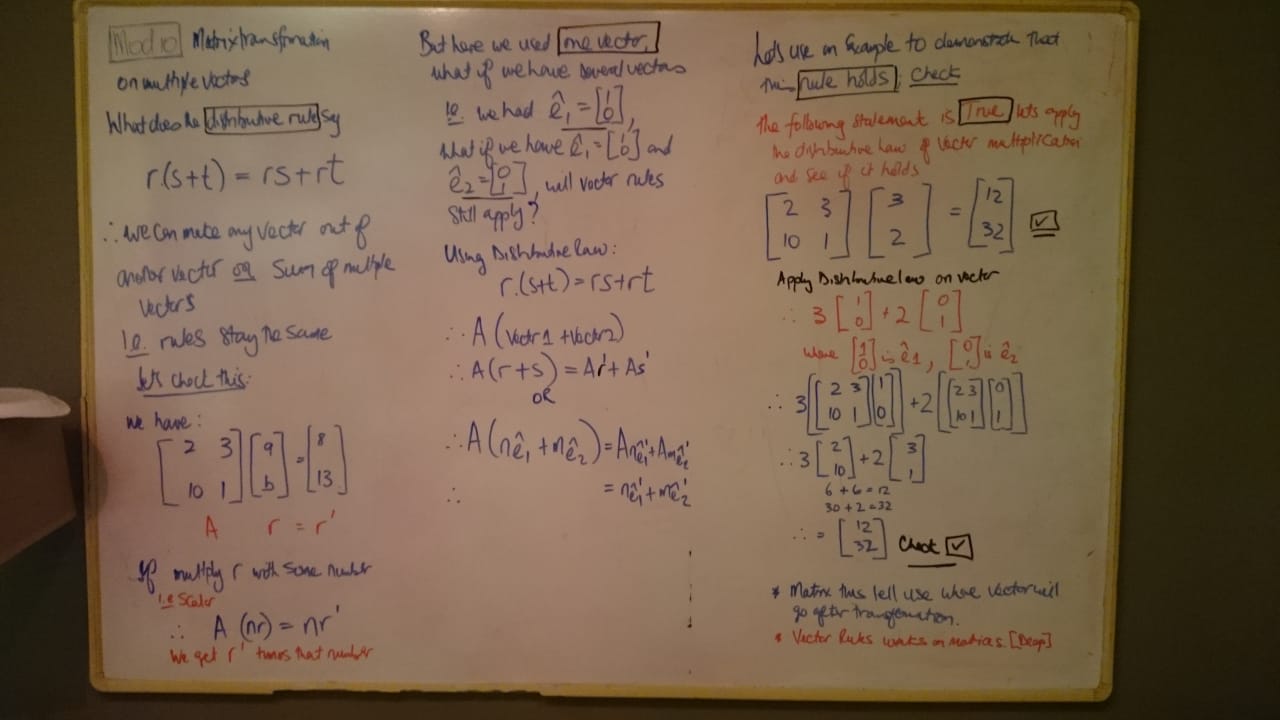 Mod 10 Matrix transformation
on multiple vectors
What does the distributive rule say
r.(s+t) = rs+rt
∴ we can make any vector out of
another vector OR Sum of multiple
Vectors
I.e. rules stay the same
let's check this:
we have:
[2 3] [a] = [8]
[10 1] [b] [13]
A r = r'
If multiply r with some number
i.e Scalar
∴ A (nr) = nr'
We get r' times that number
But here we used one vector,
what if we have several vectors
I.e. we had ê1 = [1 0],
what if we have ê1 = [1 0] and
ê2 = [0 1], will vector rules
still apply?
Using Distributive law:
r.(s+t) = rs+rt
∴ A (Vector 1 + Vector 2)
∴ A(r+s) = Ar' + As'
OR
∴ A (nê1 + mê2) = Anê1' + Amê2'
∴ = nê1' + mê2'
Lets use an Example to demonstrate that
this rule holds, Check
The following statement is True lets apply
the distributive Law of Vector multiplication
and see if it holds
[2 3] [3] = [12]
[10 1] [2] [32] ✓
Apply Distributive law on vector
∴ 3 [1 0] + 2 [0 1]
where [1 0] is ê1, [0 1] is ê2
∴ 3 [[2 3] [1]] + 2 [[2 3] [0]]
[[10 1] [0]] [[10 1] [1]]
∴ 3 [2 10] + 2 [3 1]
6 + 6 = 12
30 + 2 = 32
∴ = [12 32] Check ✓
* Matrix this tell use where vector will
go after transformation.
* Vector Rules works on matrices. [Deep]